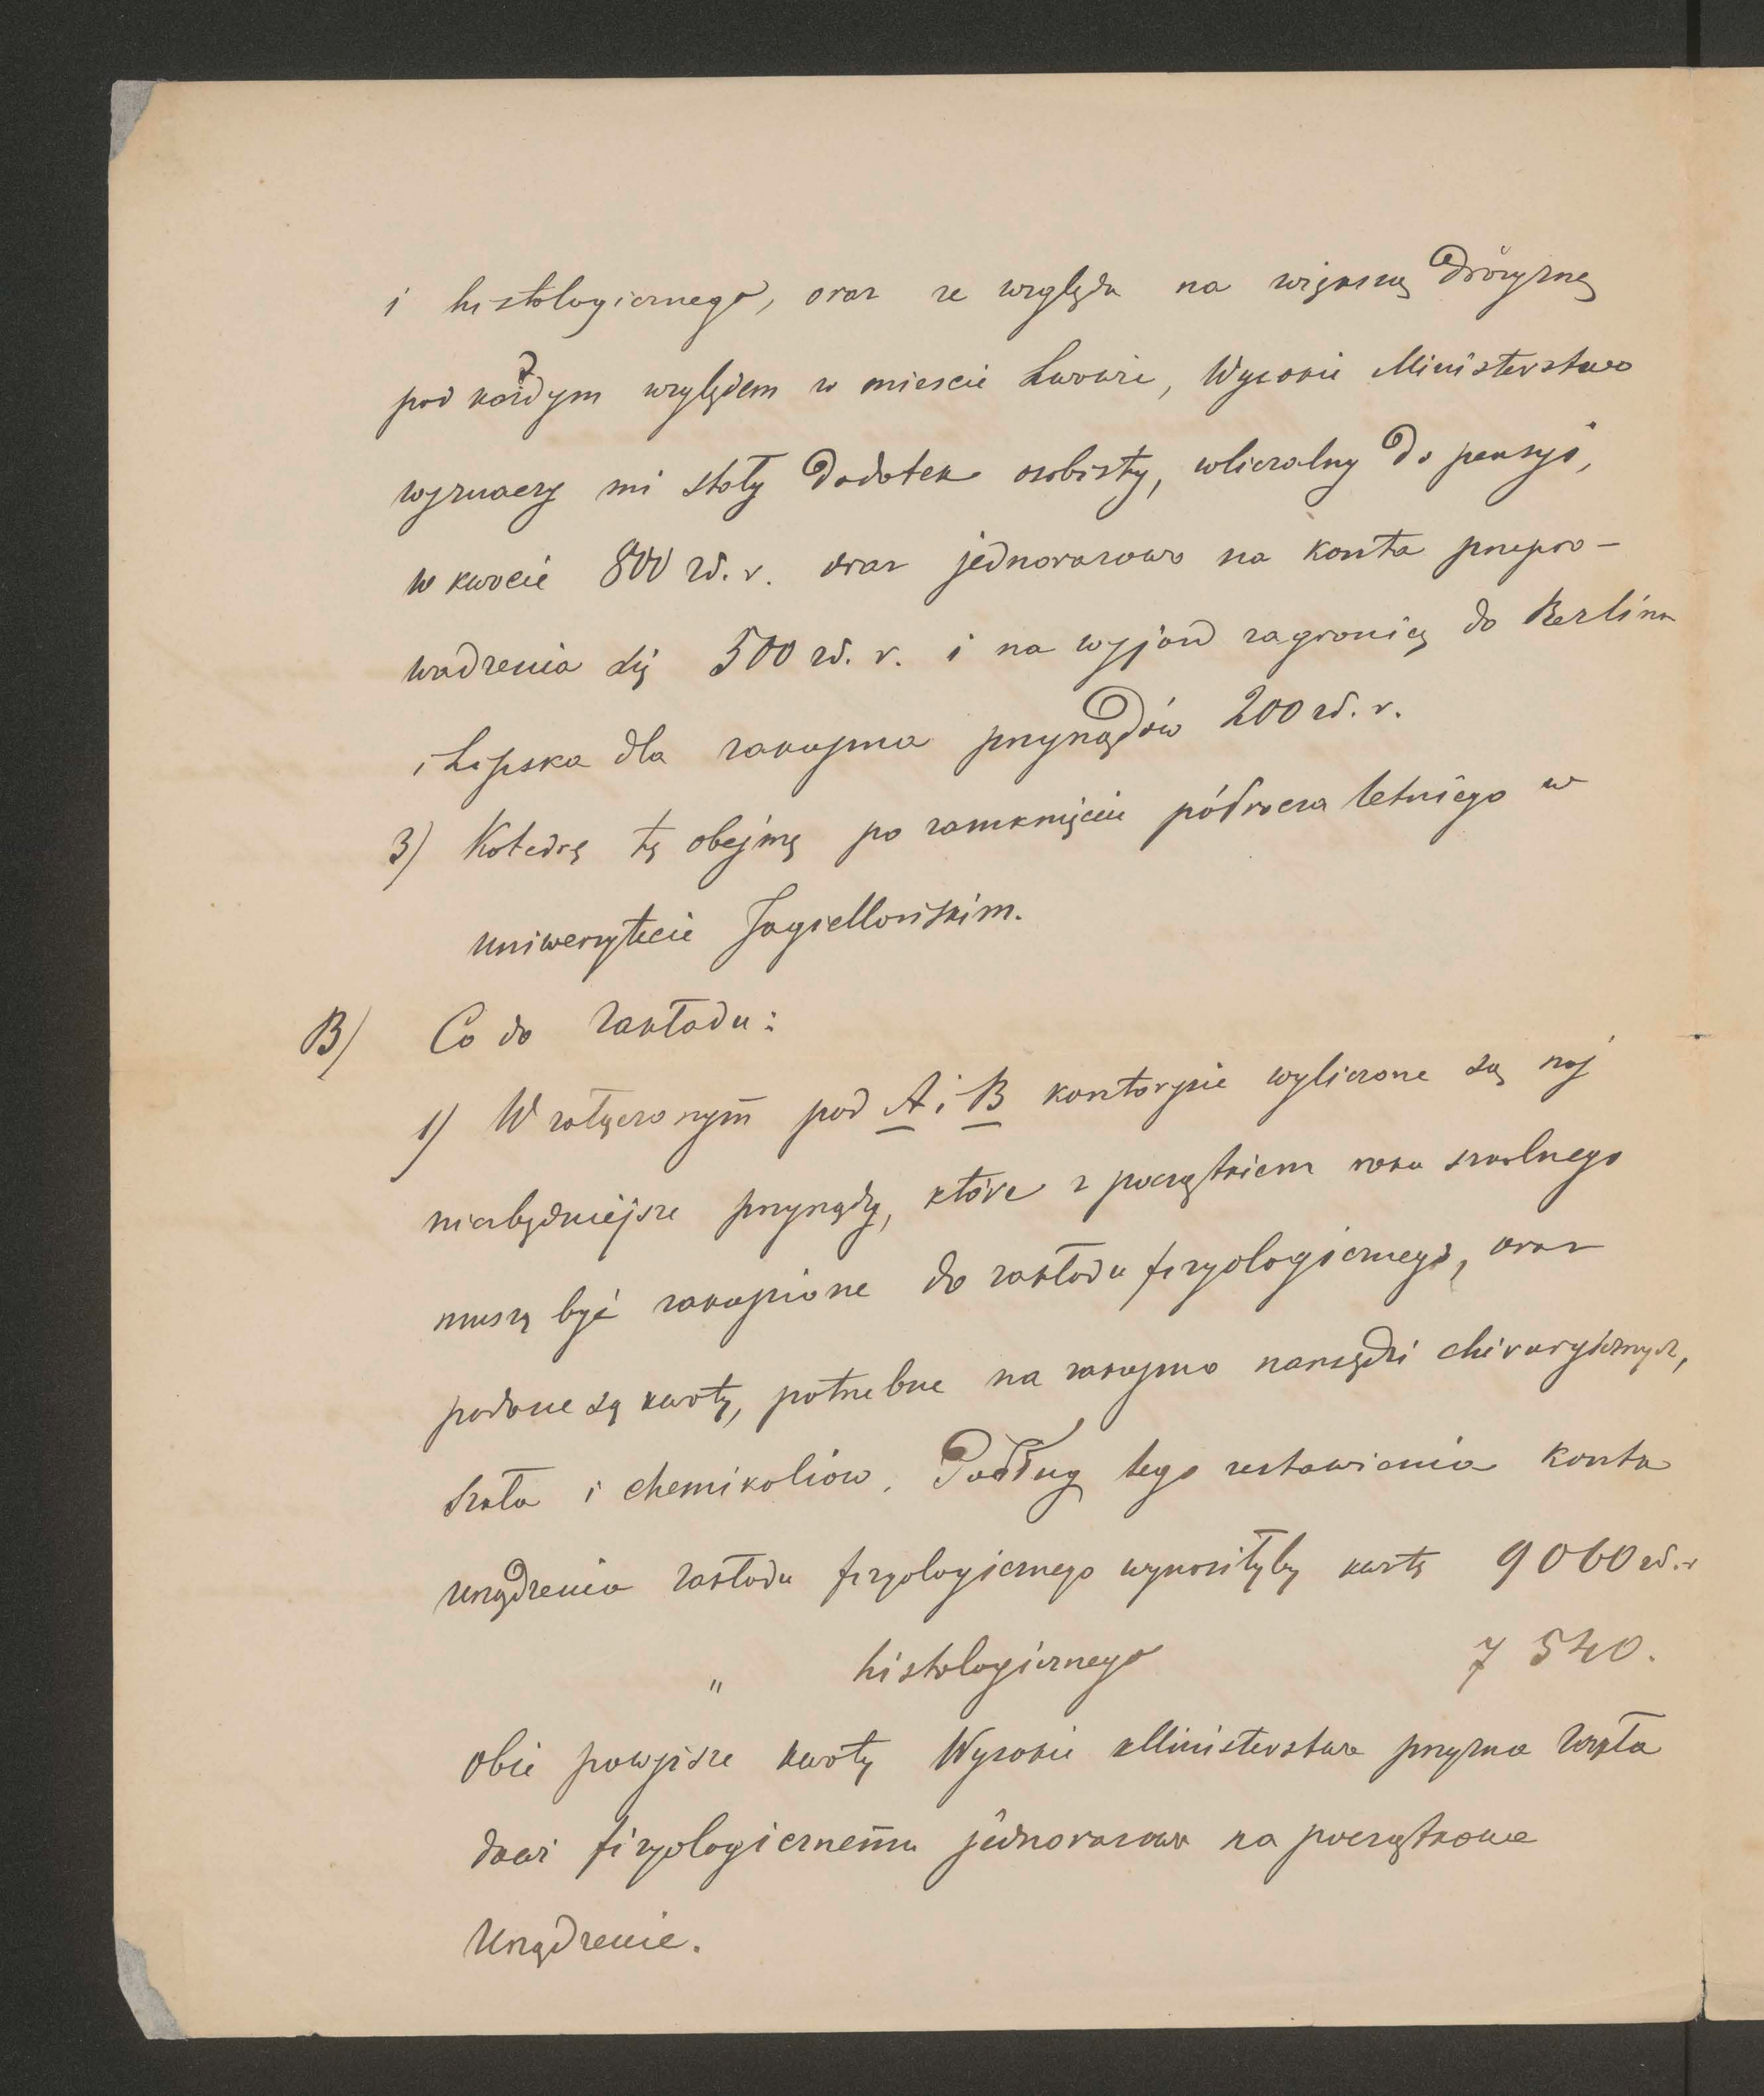 i histologicznego, oraz ze względu na większą drożyznę
pod każdym względem w mieście Lwowie, Wysokie Ministerstwo
wyznaczy mi stały dodatek osobisty, wliczalny do pensyi,
w kwocie 800 zł. r. oraz jednorazowo na koszta przepro-
wadzenia się 500 zł. r. i na wyjazd zagranicę do Berlina
i Lipska dla zakupna przyrządów 200 zł. r.
3) Katedrę tę obejmę po zamknięciu półrocza letniego w
uniwersytecie Jagiellońskim.
B) Co do zakładu:
1) W załączonym pod A i B kosztorysie wyliczone są naj
niezbędniejsze przyrządy, które z początkiem roku szkolnego
muszą być zakupione do zakładu fizyologicznego, oraz
podane są kwoty, potrzebne na zakupno narzędzi chirurgicznych,
szkła i chemikaliów. Podług tego zestawienia koszta
urządzenia zakładu fizyologicznego wynosiłyby kwotę 9060 zł. r
" histologicznego 7 540.
obie powyższe kwoty Wysokie Ministerstwo przyzna zakła
dowi fizyologicznemu jednorazowo na początkowe
urządzenie.